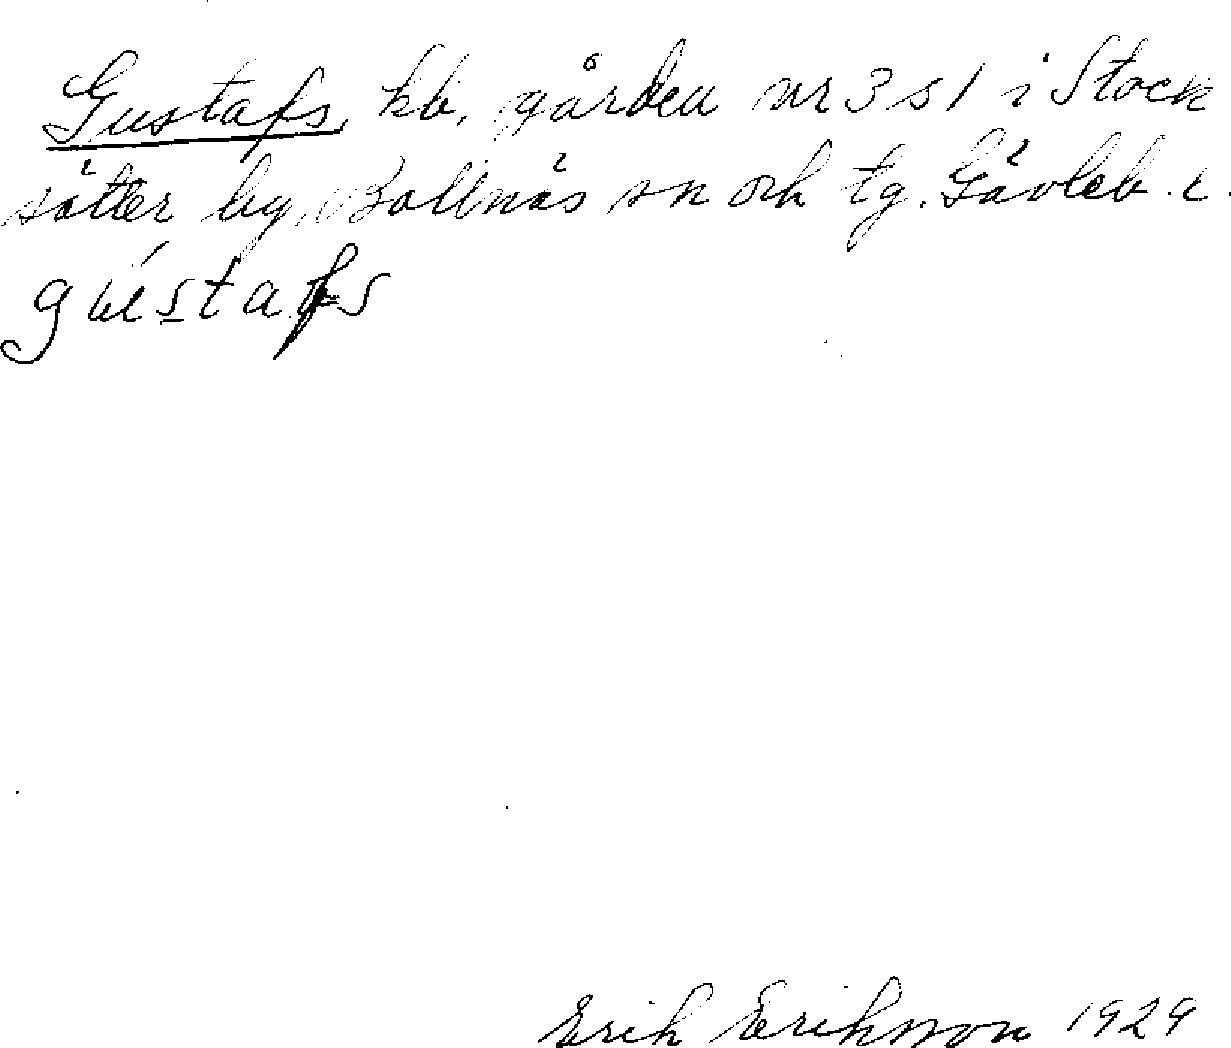 Gustafs, kb, gården nr 3 s 1 i Stock
sätter by, Bollnäs sn och tg. Gävleb. l.
gustafs
Erik Eriksson 1929